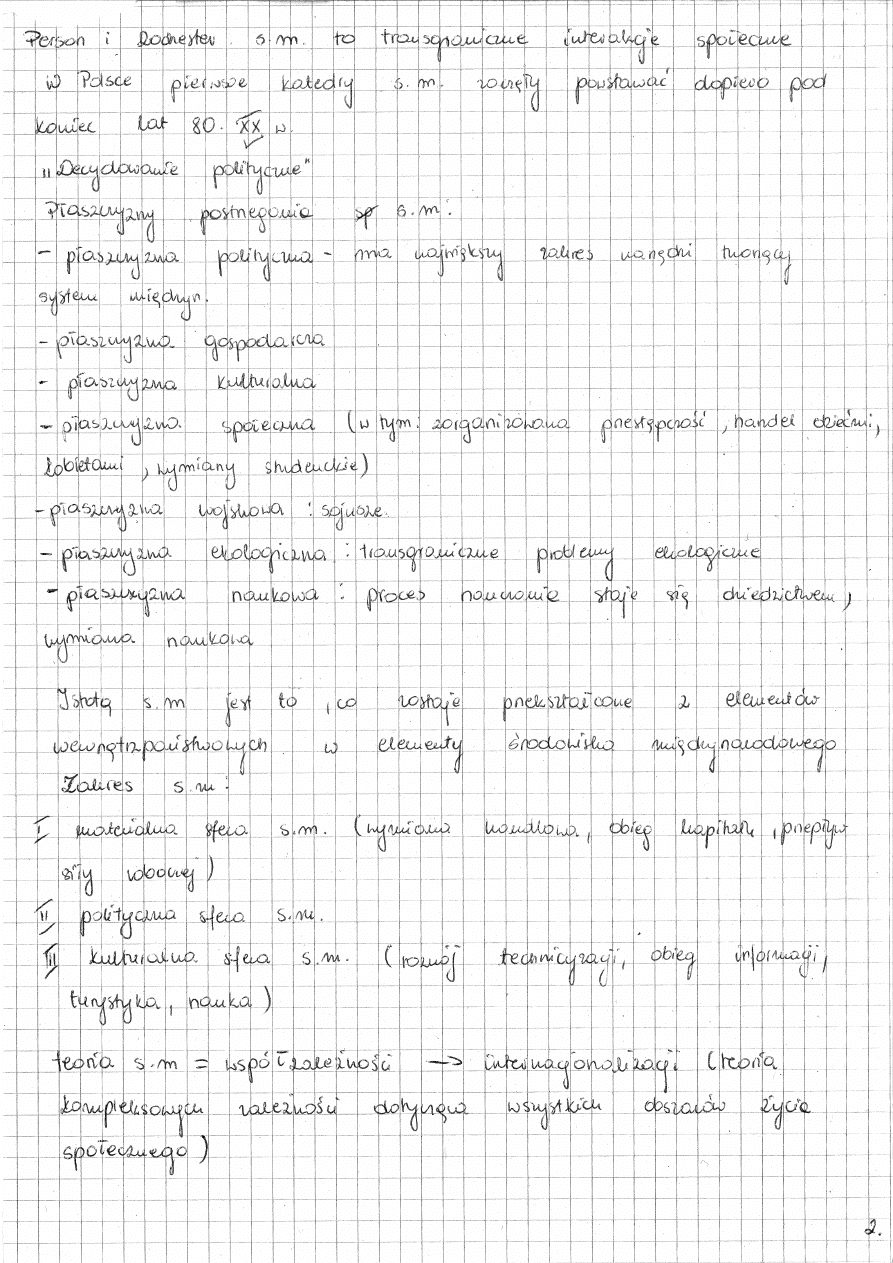 Person i Rochester s.m. to transgraniczne interakcje społeczne
W Polsce pierwsze katedry s.m. zaczęły powstawać dopiero pod
koniec lat 80. XX w.
"Decydowanie polityczne"
Płaszczyzny postrzegania s.m:
- płaszczyzna polityczna - ma największy zakres narzędzi tworzący
system międzyn.
- płaszczyzna gospodarcza
- płaszczyzna kulturalna
- płaszczyzna społeczna (w tym: zorganizowana przestępczość, handel dziećmi,
kobietami, wymiany studenckie)
- płaszczyzna wojskowa: sojusze.
- płaszczyzna ekologiczna: transgraniczne problemy ekologiczne
- płaszczyzna naukowa: proces nauczanie staje się dziedzictwem,
wymiana naukowa
Istotą s.m jest to, co zostaje przekształcone z elementów
wewnątrzpaństwowych w elementy środowiska międzynarodowego
Zakres s.m:
I materialna sfera s.m. (wymiana handlowa, obieg kapitału, przepływ
siły roboczej)
II polityczna sfera s.m.
III kulturalna sfera s.m. (rozwój technicyzacji, obieg informacji,
turystyka, nauka)
teoria s.m = współzależności → internacjonalizacji (teoria
kompleksowych zależności dotycząca wszystkich obszarów życia
społecznego)
2.